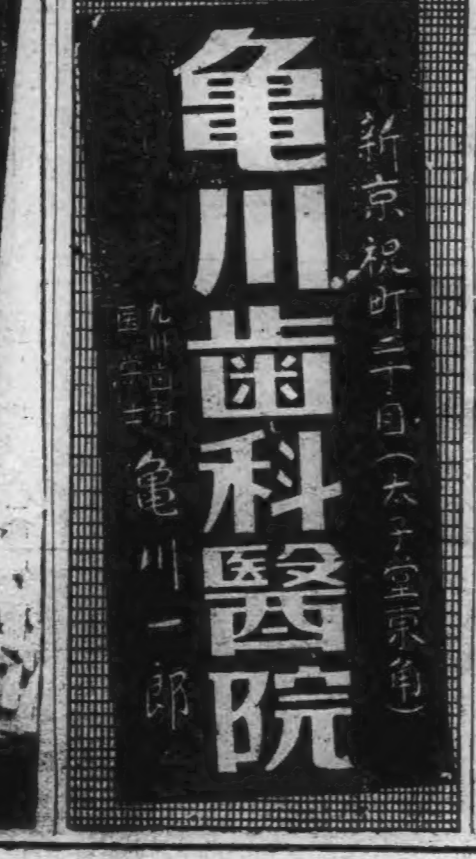 新京祝町二丁目(太子堂東角)
亀川歯科醫院
医学士
亀川一郎